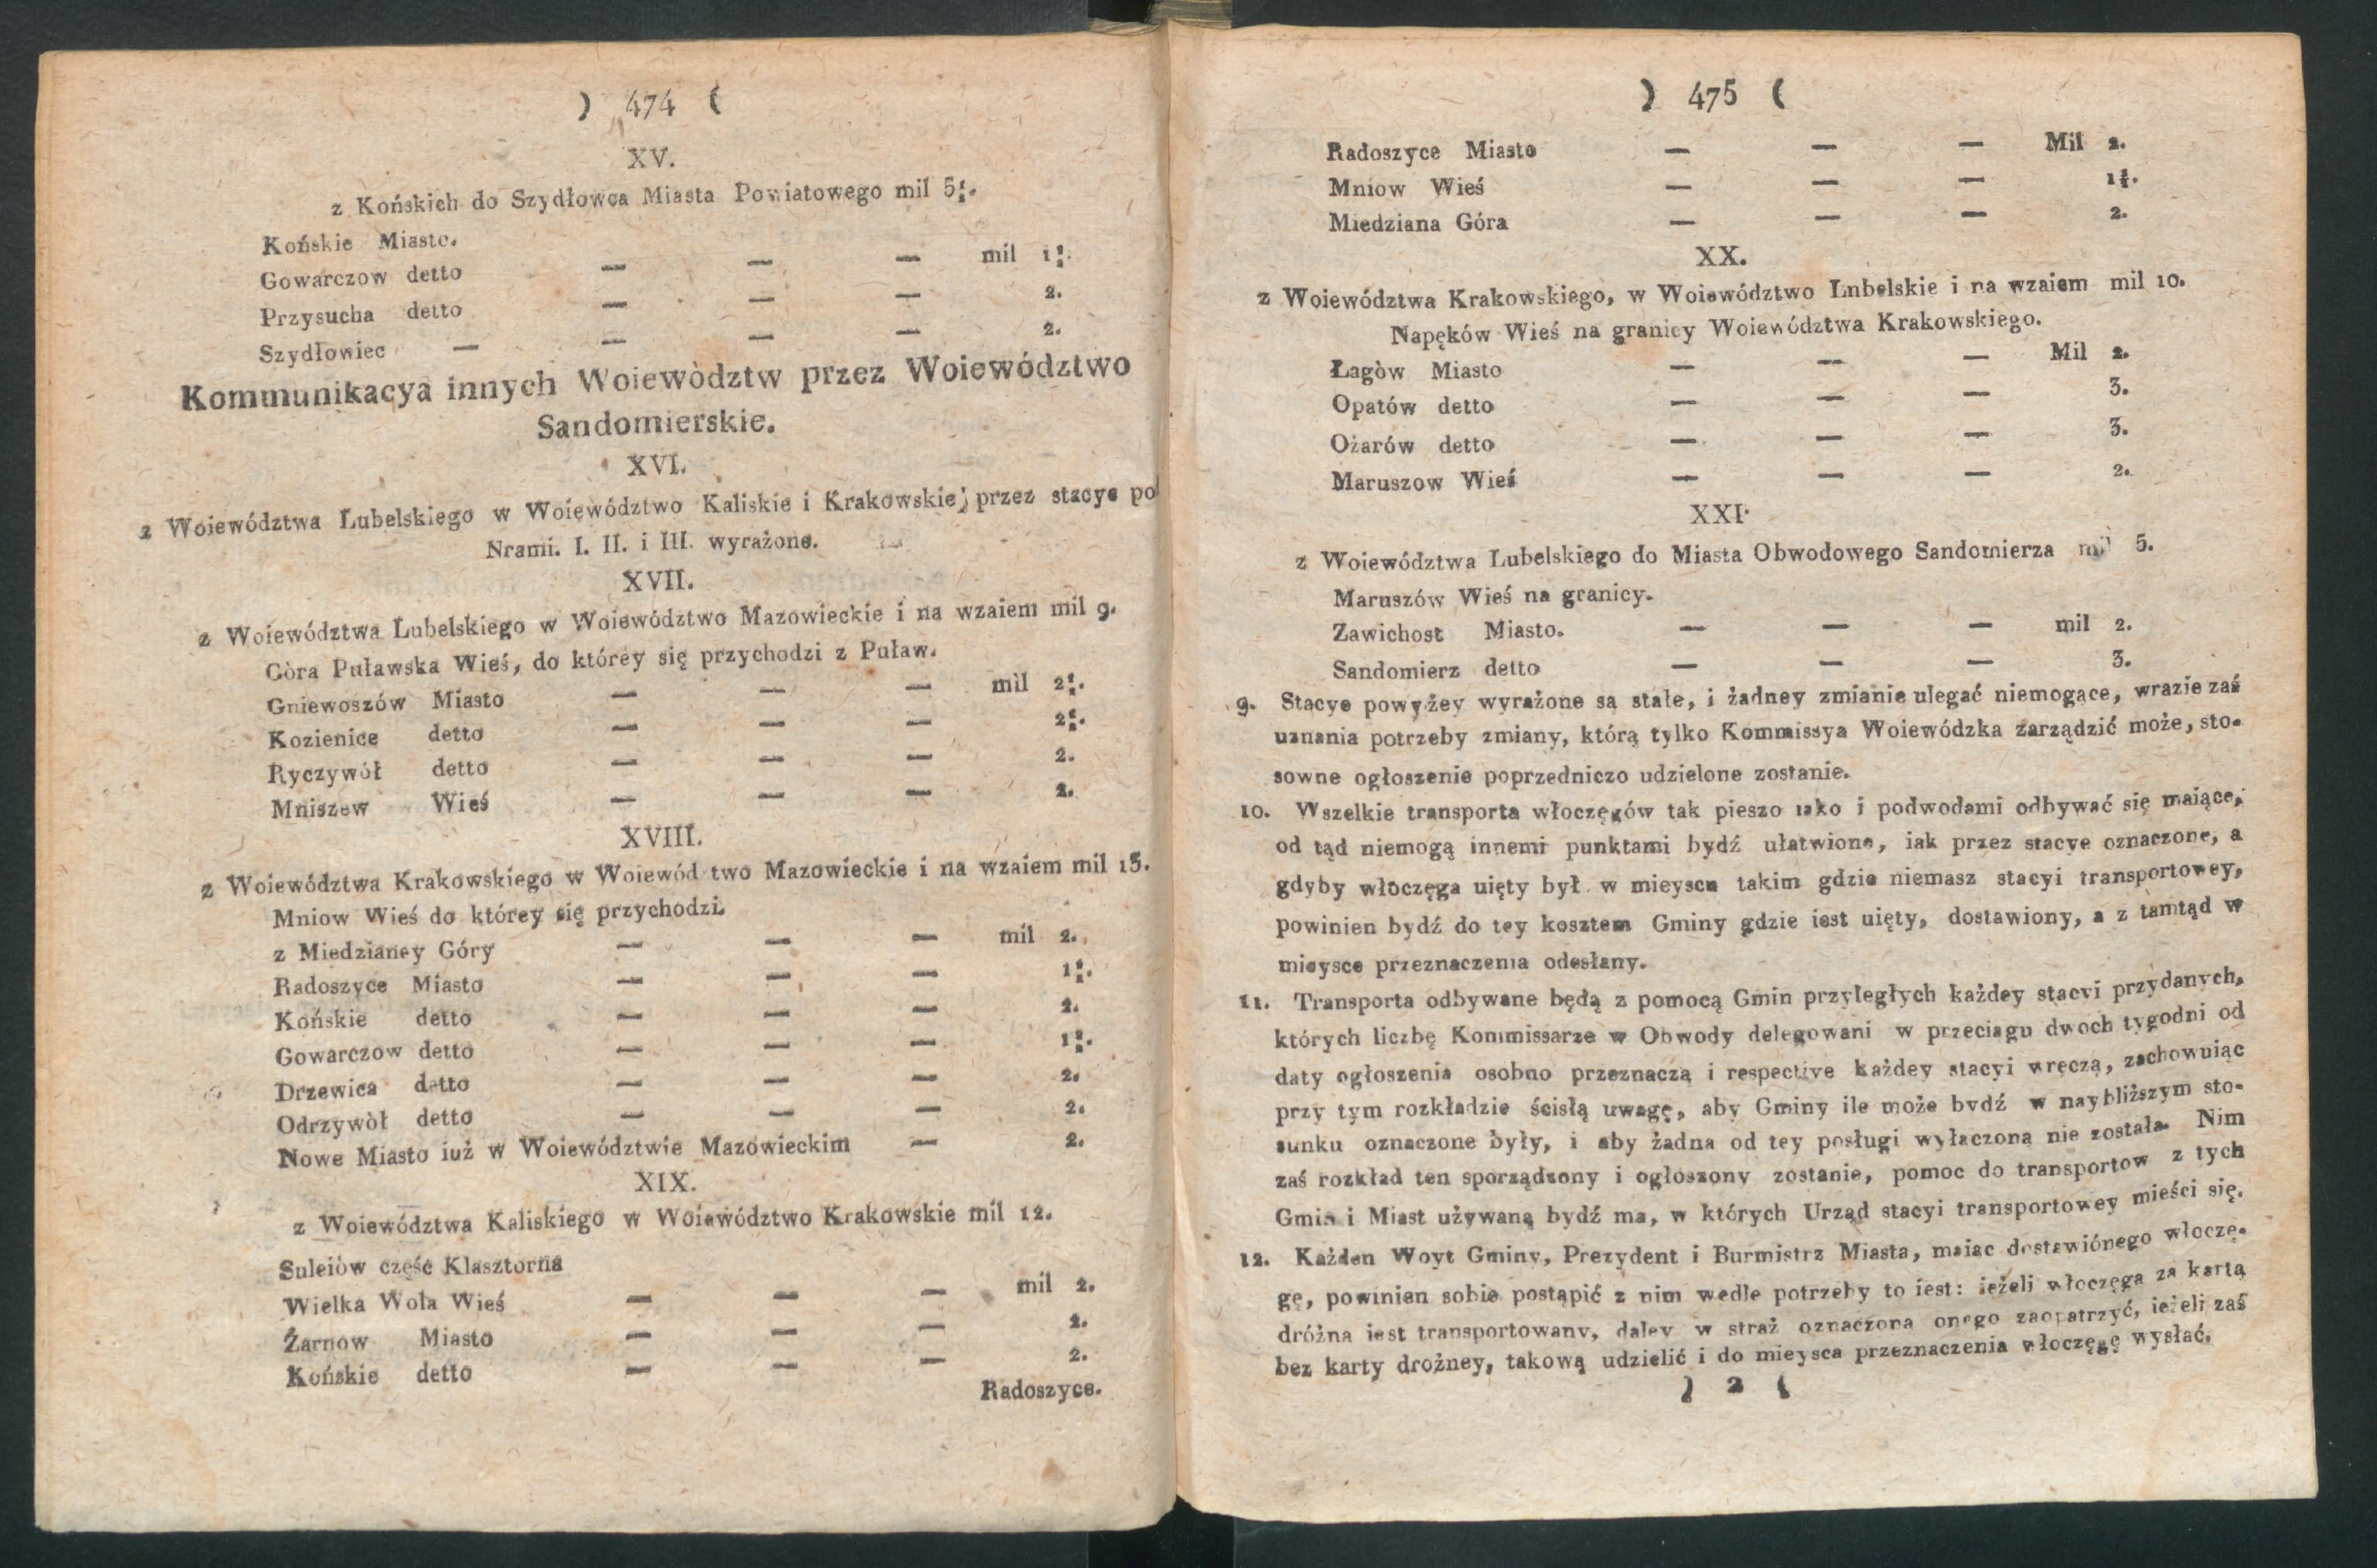 ) 474 (
XV.
z Końskich do Szydłowca Miasta Powiatowego mil 5½.
Końskie Miasto.
Gowarczow detto — — — mil 1½.
Przysucha detto — — — 2.
Szydłowiec — — — — 2.
Kommunikacya innych Woiewòdztw przez Woiewództwo
Sandomierskie.
XVI.
z Woiewództwa Lubelskiego w Woiewództwo Kaliskie i Krakowskie; przez stacye pod
Nrami. I. II. i III. wyrażone.
XVII.
z Woiewództwa Lubelskiego w Woiewództwo Mazowieckie i na wzaiem mil 9.
Gòra Puławska Wieś, do którey się przychodzi z Puław.
Gniewoszów Miasto — — — mil 2½.
Kozienice detto — — — 2½.
Ryczywół detto — — — 2.
Mniszew Wieś — — — 2.
XVIII.
z Woiewództwa Krakowskiego w Woiewód two Mazowieckie i na wzaiem mil 13.
Mniow Wieś do którey się przychodzi
z Miedzianey Góry — — — mil 2.
Radoszyce Miasto — — — 1½.
Końskie detto — — — 2.
Gowarczow detto — — — 1½.
Drzewica detto — — — 2.
Odrzywòł detto — — — 2.
Nowe Miasto iuż w Woiewództwie Mazowieckim — 2.
XIX.
z Woiewództwa Kaliskiego w Woiewództwo Krakowskie mil 12.
Suleiòw część Klasztorna
Wielka Wola Wieś — — — mil 2.
Żarnow Miasto — — — 2.
Końskie detto — — — 2.
Radoszyce.
) 475 (
Radoszyce Miasto — — — Mil 2.
Mniow Wieś — — — 1½.
Miedziana Góra — — — 2.
XX.
z Woiewództwa Krakowskiego, w Woiewództwo Lnbelskie i na wzaiem mil 10.
Napęków Wieś na granicy Woiewództwa Krakowskiego.
Łagòw Miasto — — — Mil 2.
Opatów detto — — — 3.
Ożarów detto — — — 3.
Maruszow Wieś — — — 2.
XXI.
z Woiewództwa Lubelskiego do Miasta Obwodowego Sandomierza mil 5.
Maruszów Wieś na granicy.
Zawichost Miasto. — — — mil 2.
Sandomierz detto — — — 3.
9. Stacye powyżey wyrażone są stałe, i żadney zmianie ulegać niemogące, wrazie zaś
uznania potrzeby zmiany, którą tylko Kommissya Woiewódzka zarządzić może, sto-
sowne ogłoszenie poprzedniczo udzielone zostanie.
10. Wszelkie transporta włoczęgów tak pieszo iako i podwodami odbywać się maiące,
od tąd niemogą innemi punktami bydź ułatwione, iak przez stacye oznaczone, a
gdyby włóczęga uięty był w mieyscu takim gdzie niemasz stacyi transportowey,
powinien bydź do tey kosztem Gminy gdzie iest uięty, dostawiony, a z tamtąd w
mieysce przeznaczenia odesłany.
11. Transporta odbywane będą z pomocą Gmin przyległych każdey stacyi przydanych,
których liczbę Kommissarze w Obwody delegowani w przeciągu dwoch tygodni od
daty ogłoszenia osobno przeznaczą i respective każdey stacyi wręczą, zachowuiąc
przy tym rozkładzie ścisłą uwagę, aby Gminy ile może bydź w naybliższym sto-
sunku oznaczone były, i aby żadna od tey posługi wyłączoną nie została. Nim
zaś rozkład ten sporządzony i ogłoszony zostanie, pomoc do transportow z tych
Gmin i Miast używaną bydź ma, w których Urząd stacyi transportowey mieści się.
12. Każden Woyt Gminy, Prezydent i Burmistrz Miasta, maiąc dostawiónego włoczę-
gę, powinien sobie postąpić z nim wedle potrzeby to iest: ieżeli włoczęga za kartą
dróżna iest transportowany, daley w straż oznaczoną onego zaopatrzyć, ieżeli zaś
bez karty drożney, takową udzielić i do mieysca przeznaczenia włoczęgę wysłać.
) 2 (